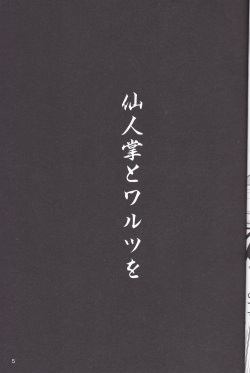 仙人掌とワルツを
5